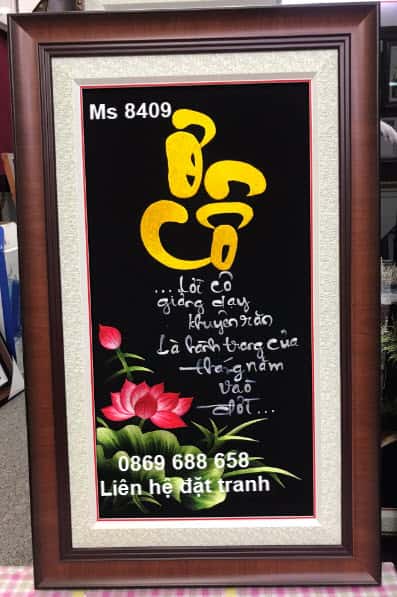 Ms 8409
Cô
... Lời cô
giảng dạy
khuyên răn
Là hành trang của
tháng năm
vào
đời ...
0869 688 658
Liên hệ đặt tranh